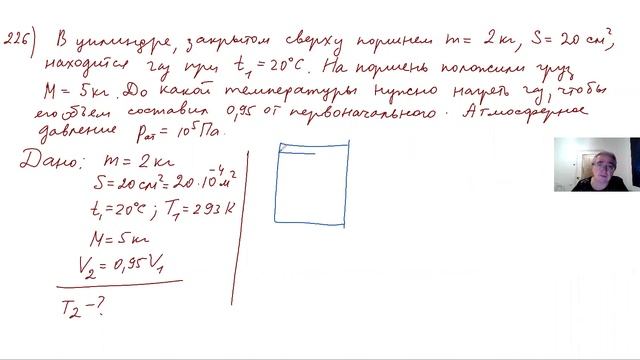 226) В цилиндре, закрытом сверху поршнем m = 2 кг, S = 20 см²,
находится газ при t₁ = 20°C. На поршень положили груз
M = 5 кг. До какой температуры нужно нагреть газ, чтобы
его объем составил 0,95 от первоначального. Атмосферное
давление Pат = 10⁵ Па.
Дано: m = 2 кг
S = 20 см² = 20·10⁻⁴ м²
t₁ = 20°C; T₁ = 293 K
M = 5 кг
V₂ = 0,95 V₁
T₂ - ?